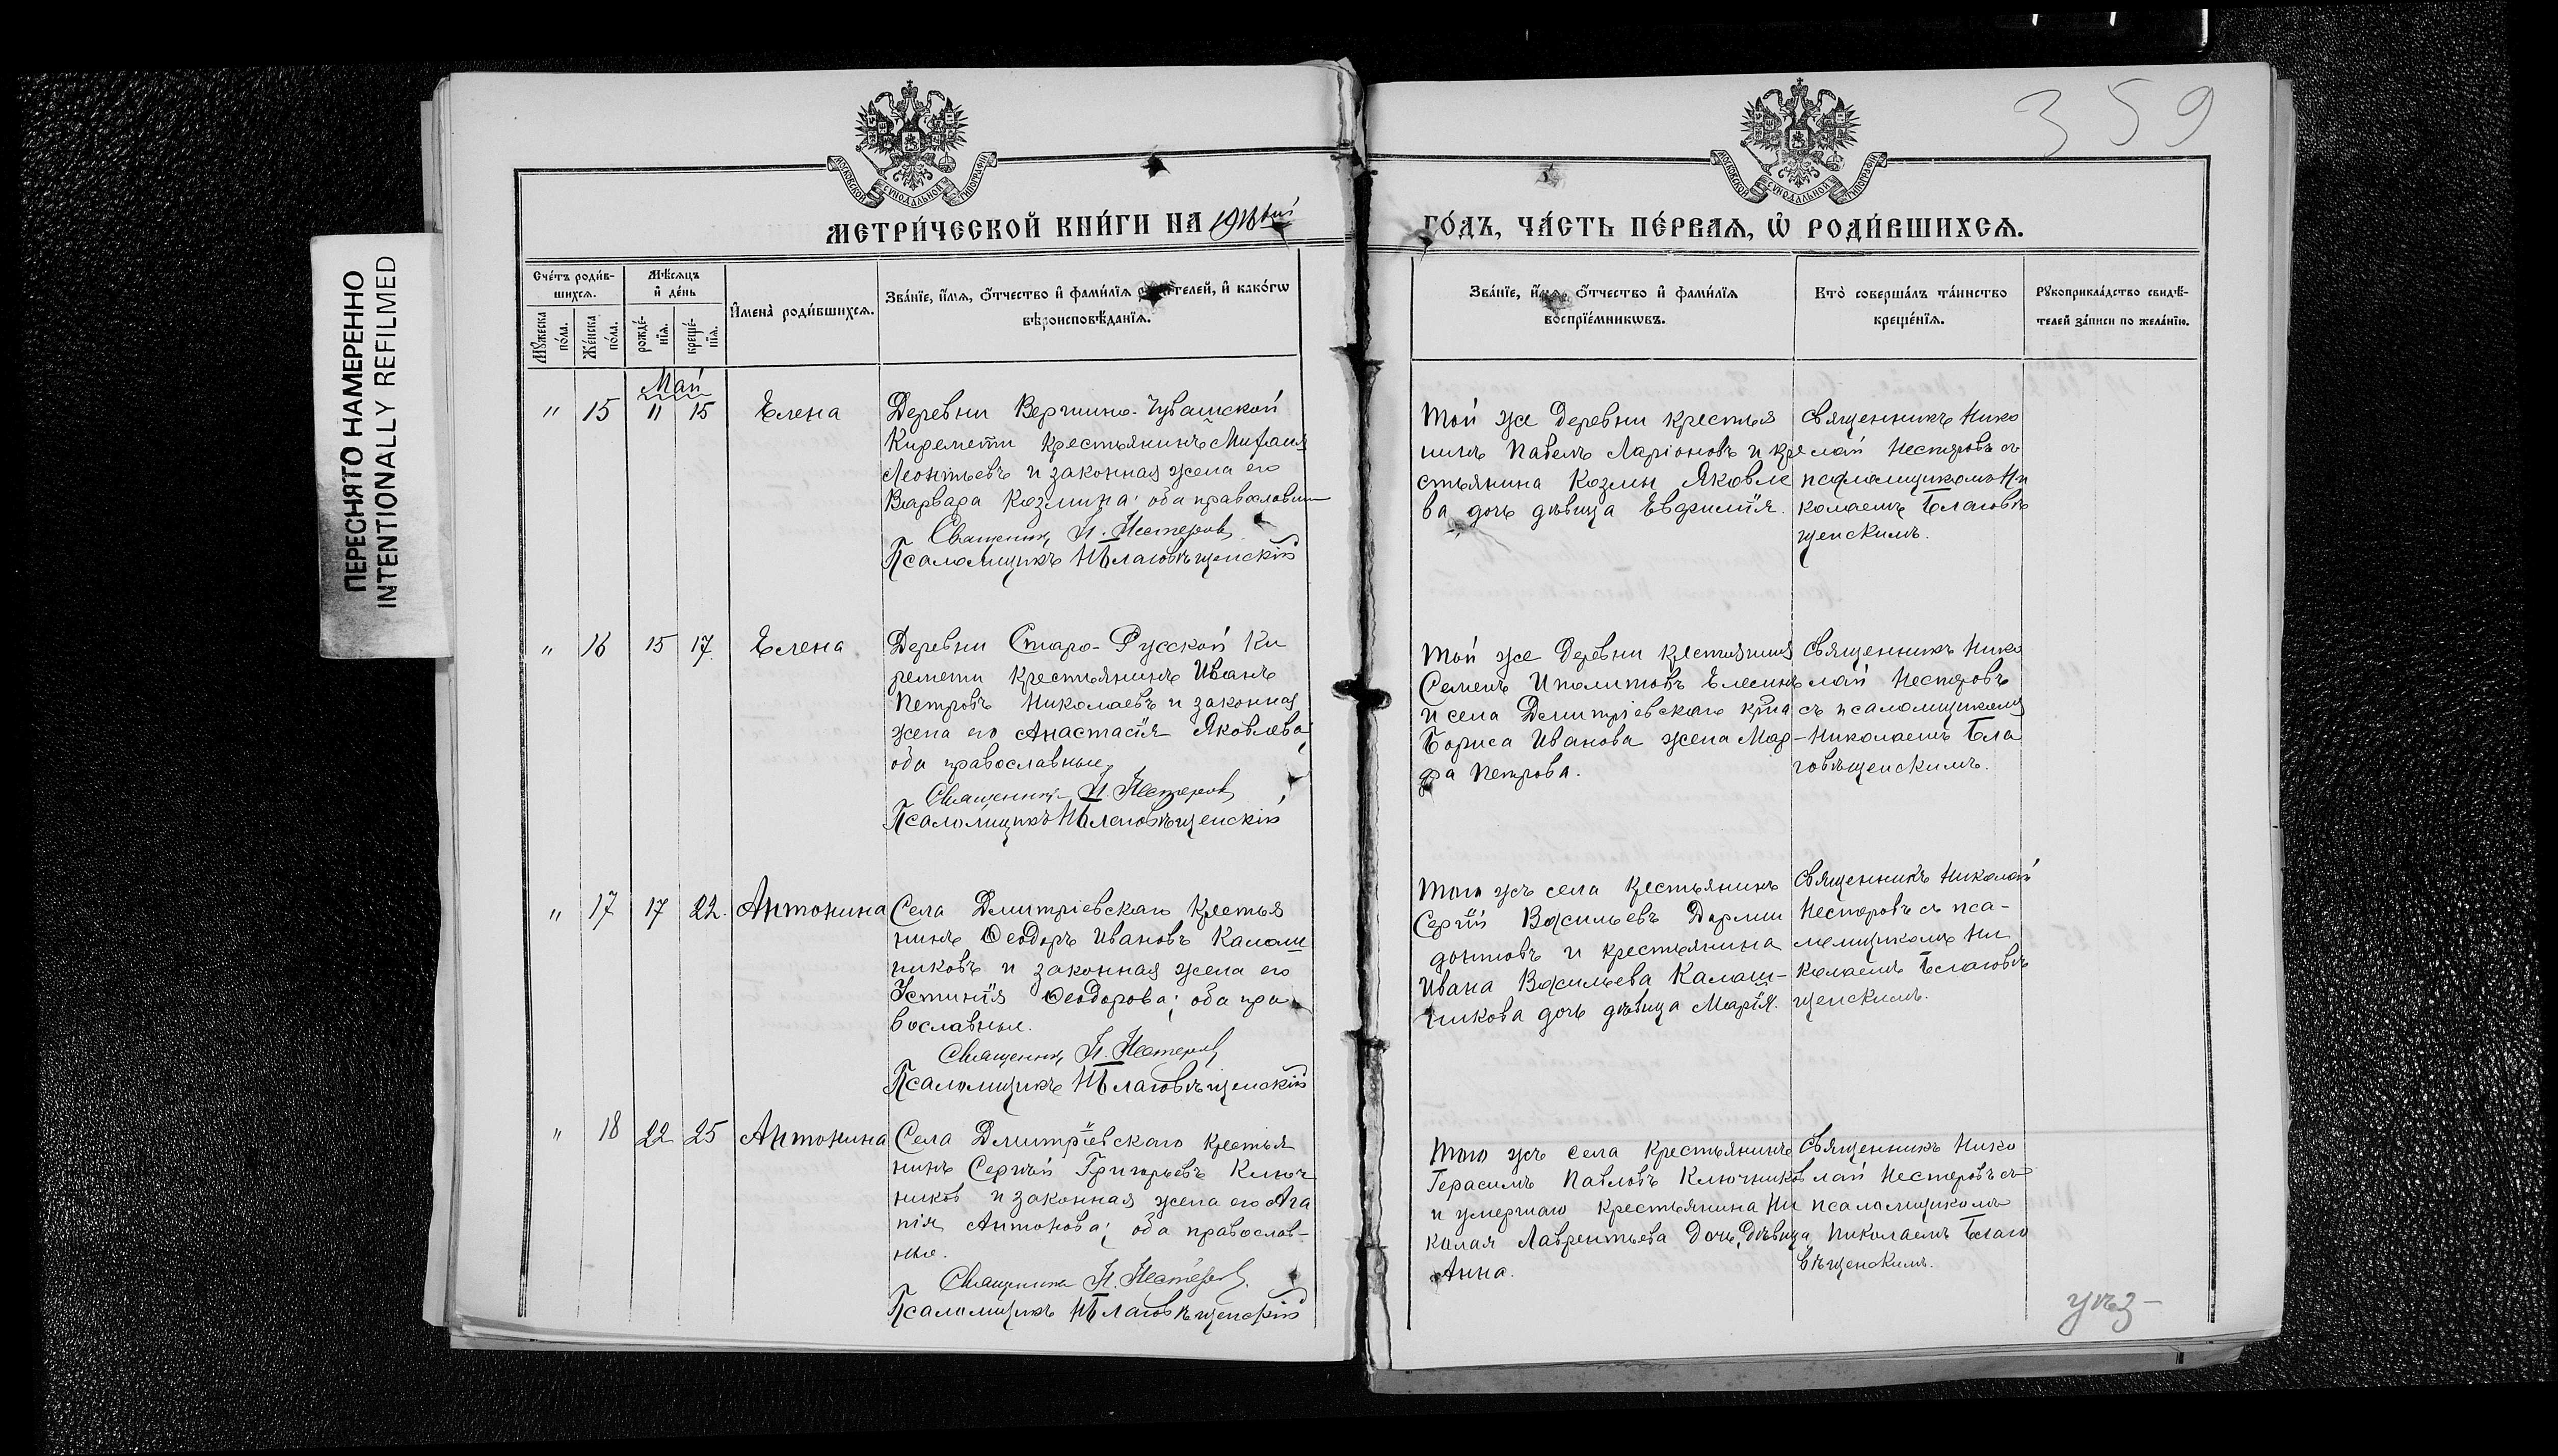 ПЕРЕСНЯТО НАМЕРЕННО
INTENTIONALLY REFILMED
359
МОСКОВСКОЙ СѴНОДАЛЬНОЙ ТИПОГРАФІИ
МОСКОВСКОЙ СѴНОДАЛЬНОЙ ТИПОГРАФІИ
МЕТРИ́ЧЕСКОЙ КНИ́ГИ НА
ГО́ДЪ, ЧА́СТЬ ПЕ́РВАѦ, Ѡ РОДИ́ВШИХСѦ.
Сче́тъ роди́в-
шихсѧ.
Мꙋ́жеска по́ла.
Же́нска по́ла.
Мѣ́сѧцъ
и҆ де́нь
рожде́-нїѧ.
креще́-нїѧ.
И҆мена̀ роди́вшихсѧ.
Зва́нїе, и҆́мѧ, ѻ҆́тчество и҆ фами́лїѧ роди́телей, и҆ како́гѡ
вѣроисповѣ́данїѧ.
Зва́нїе, и҆́мѧ, ѻ҆́тчество и҆ фами́лїѧ
воспрїе́мникѡвъ.
Кто̀ соверша́лъ та́инство
креще́нїѧ.
Рꙋкоприкла́дство свидѣ́-
телей за́писи по жела́нїю.
Май
" 15 11 15 Елена
Деревни Вершино-Чувашской
Киремети крестьянинъ
Леонтьевъ и законная жена его
Варвара Козмина; оба православные
Священникъ Н. Нестеровъ
Псаломщикъ Н Благовѣщенскій
Той же деревни крестья
нинъ Павелъ Ларіоновъ и кре
стьянина Козмы Яковле
ва дочь дѣвица Евфимія.
Священникъ Нико
лай Нестеровъ съ
псаломщикомъ Ни
колаемъ Благовѣ
щенскимъ.
" 16 15 17 Елена
Деревни Старо-Русской Ки
ремети крестьянинъ Иванъ
Петровъ Николаевъ и законная
жена его Анастасія Яковлева;
оба православные.
Священникъ Н. Нестеровъ
Псаломщикъ Н Благовѣщенскій
Той же деревни крестьянинъ
Семенъ Иполитовъ
и села Дмитріевскаго кр-на
Бориса Иванова жена Мар-
ѳа Петрова.
Священникъ Нико
лай Нестеровъ
съ псаломщикомъ
Николаемъ Бла
говѣщенскимъ.
" 17 17 22 Антонина
Села Дмитріевскаго крестья
нинъ Ѳеодоръ Ивановъ Калаш
никовъ и законная жена его
Устинія Ѳеодорова; оба пра
вославные.
Священникъ Н. Нестеровъ
Псаломщикъ Н Благовѣщенскій
Того жъ села крестьянинъ
Сергій Васильевъ Дорми
донтовъ и крестьянина
Ивана Васильева Калаш-
никова дочь дѣвица Марія.
Священникъ Николай
Нестеровъ съ пса-
ломщикомъ Ни
колаемъ Благовѣ
щенскимъ.
" 18 22 25 Антонина
Села Дмитріевскаго крестья
нинъ Сергѣй Григорьевъ Ключ
никовъ и законная жена его Ага
пія Антонова; оба православ-
ные.
Священникъ Н. Нестеровъ.
Псаломщикъ Н Благовѣщенскій
Того жъ села крестьянинъ
Герасимъ Павловъ Ключниковъ
и умершаго крестьянина Ни
колая Лаврентьева дочь, дѣвица
Анна.
Священникъ Нико
лай Нестеровъ съ
псаломщикомъ
Николаемъ Благо
вѣщенскимъ.